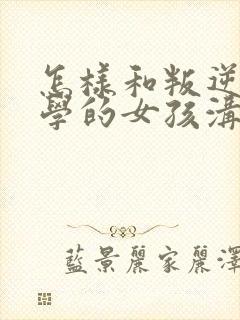 怎樣和叛逆
學的女孩溝
藍景麗家麗澤